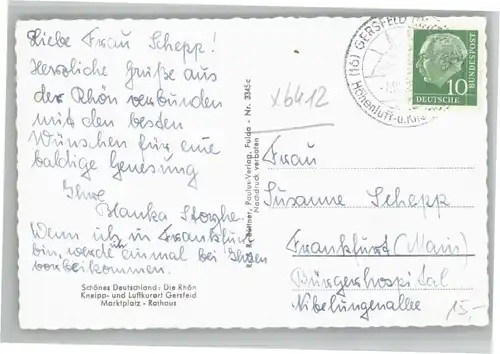 Liebe Frau Schepp!
Herzliche Grüße aus
der Rhön verbunden
mit den besten
Wünschen für eine
baldige Genesung
Ihre
Blanka Storghe.
Wenn ich in Frankfurt
bin, werde ich einmal bei Ihnen
vorbeikommen.
Schönes Deutschland: Die Rhön
Kneipp- und Luftkurort Gersfeld
Marktplatz - Rathaus
Büttner, Paulus-Verlag, Fulda - Nr. 3345c
Nachdruck verboten
x6412
(16) GERSFELD
Höhenluft-u.
DEUTSCHE
BUNDESPOST
10
Frau
Susanne Schepp
Frankfurt (Main)
Bürgerhospital
Nibelungenallee
15,-